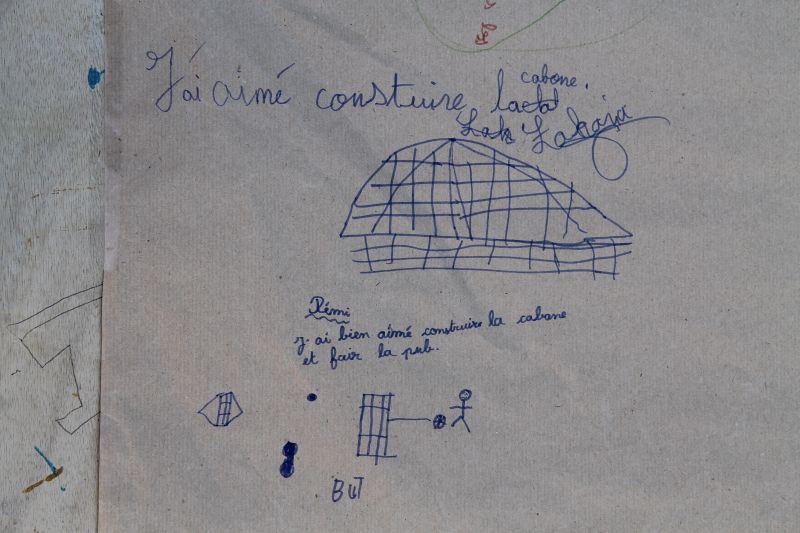 J'ai aimé construire la
cabane.
Rémi
J'ai bien aimé construire la cabane
et fair la pub.
BUT